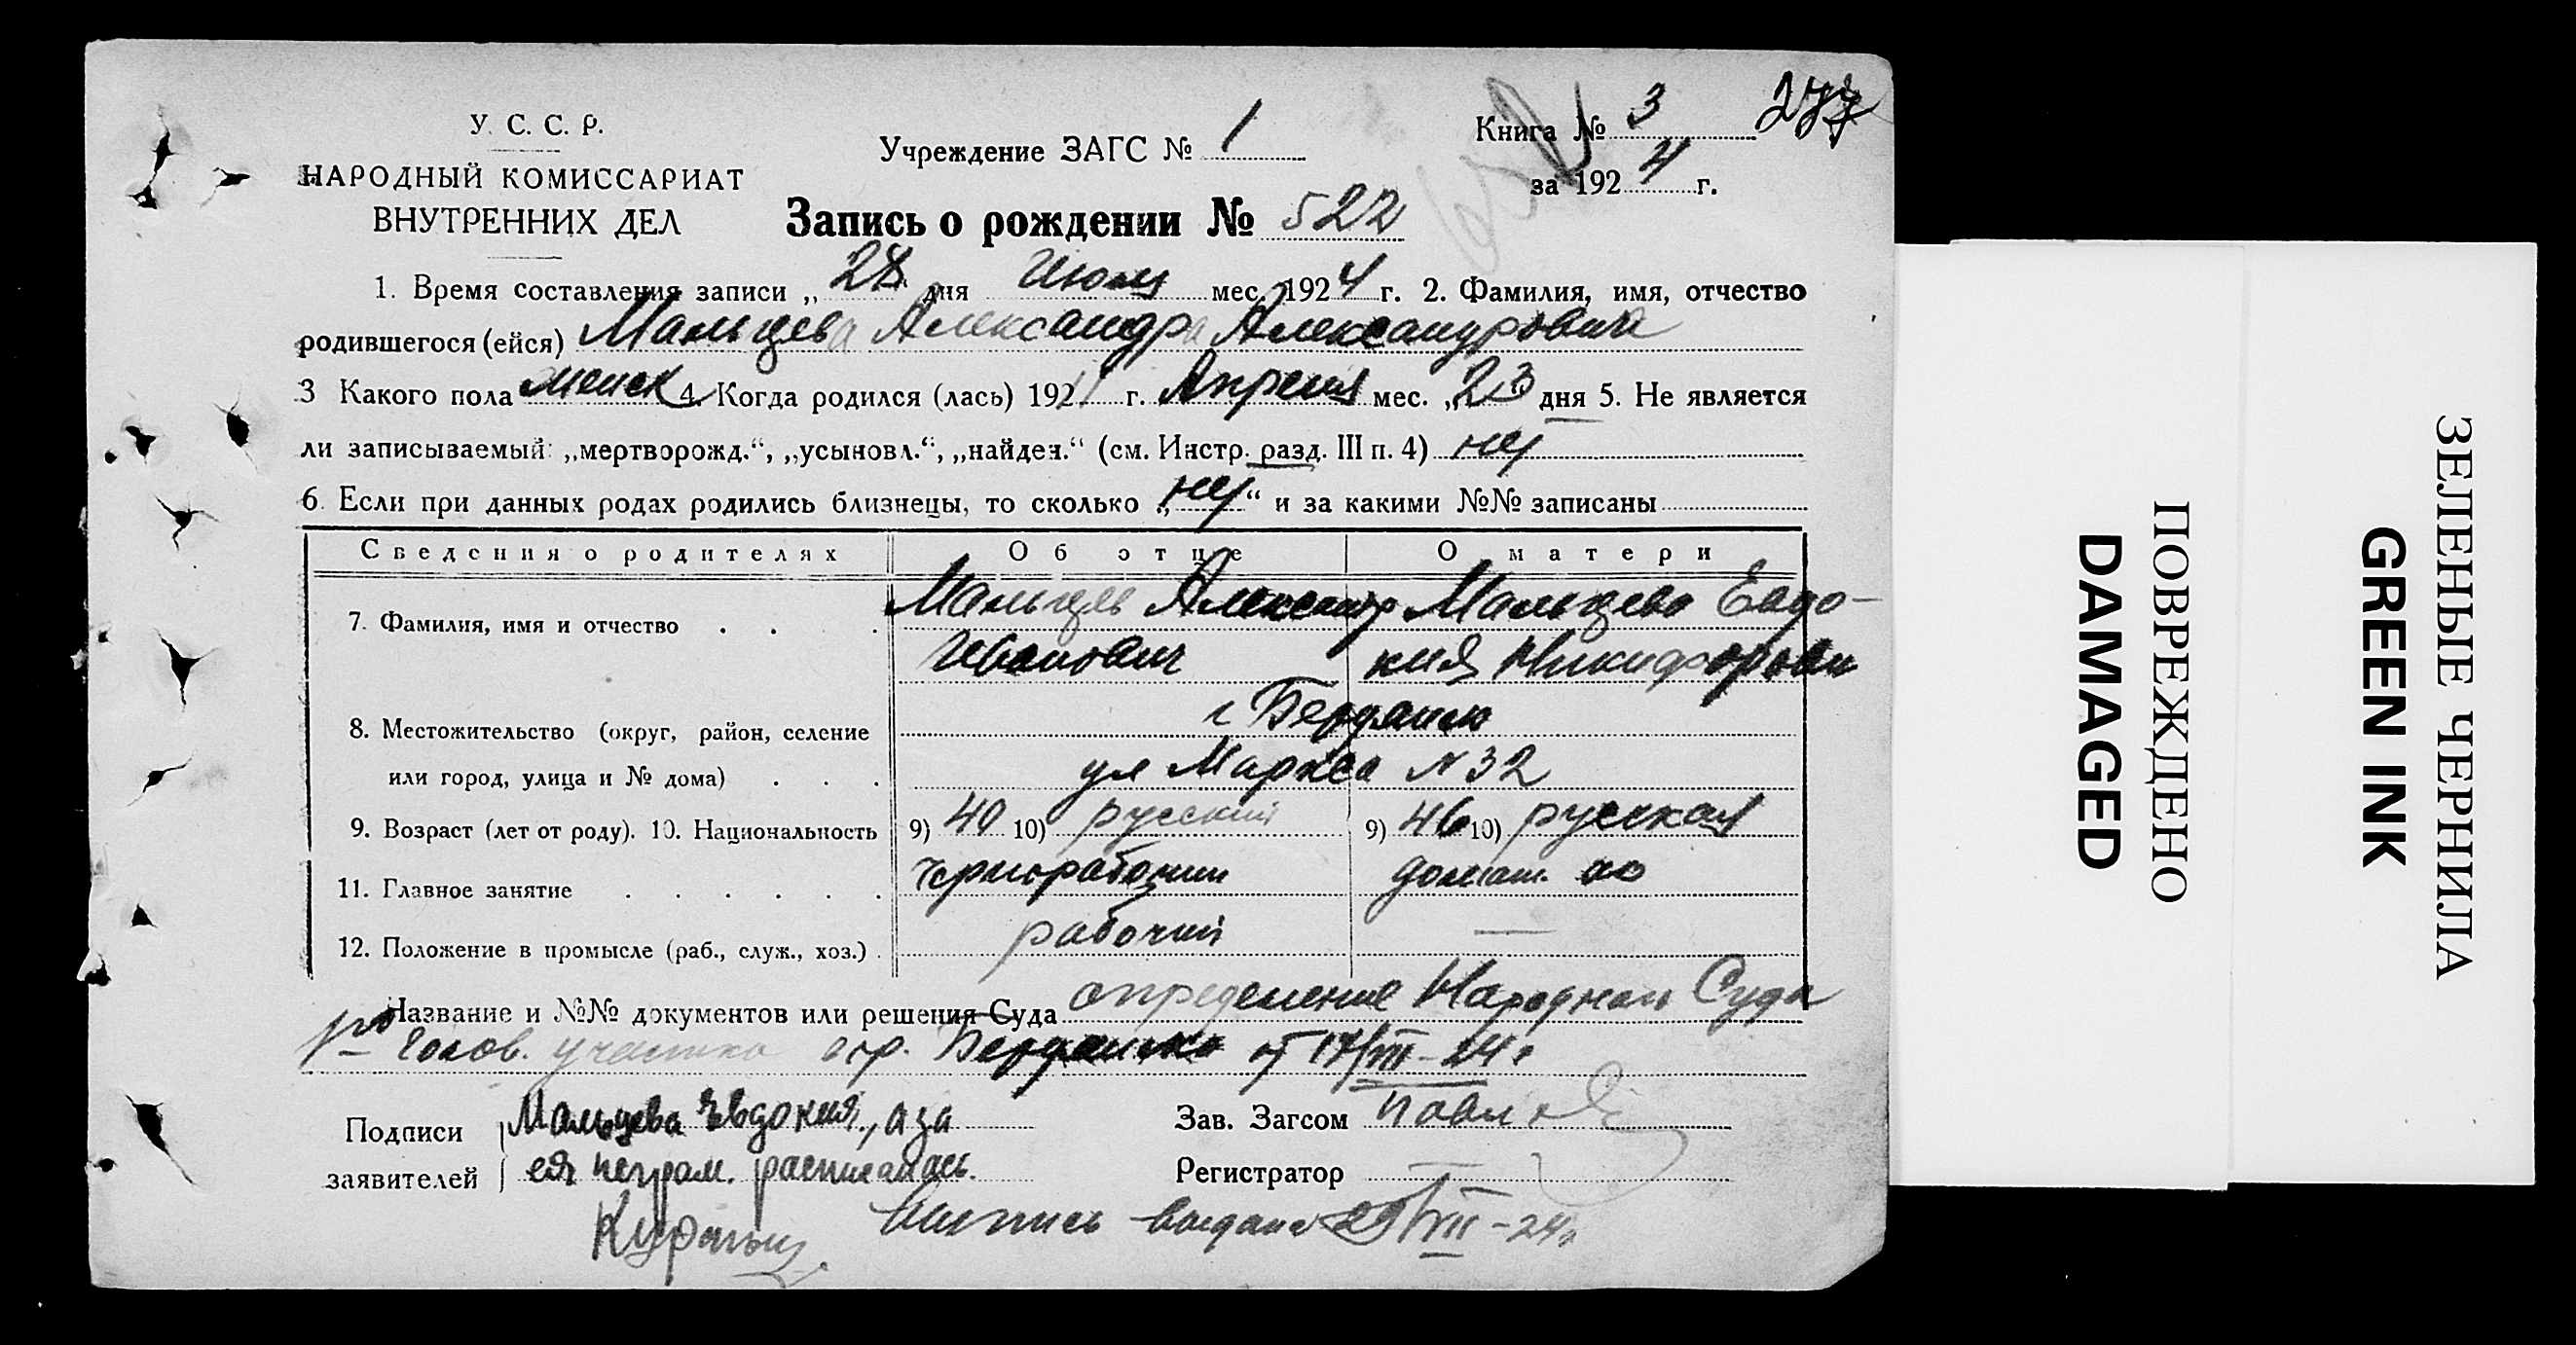 У. С. С. Р.
НАРОДНЫЙ КОМИССАРИАТ
ВНУТРЕННИХ ДЕЛ
Учреждение ЗАГС № 1
Книга № 3 277
за 1924 г.
Запись о рождении № 522
1. Время составления записи „28 дня Июля мес. 1924 г. 2. Фамилия, имя, отчество
родившегося (ейся) Мальцева Александра Александровича
3 Какого пола женск 4. Когда родился (лась) 192 г. Апреля мес. „23 дня 5. Не является
ли записываемый: „мертворожд.“, „усыновл.“, „найден.“ (см. Инстр. разд. III п. 4) нет
6. Если при данных родах родились близнецы, то сколько „нет“ и за какими №№ записаны
Сведения о родителях Об отце О матери
7. Фамилия, имя и отчество Мальцев Александр Мальцева Евдо-
Иванович кия Никифоровн
8. Местожительство (округ, район, селение г Бердянск
или город, улица и № дома) ул Маркса N 32
9. Возраст (лет от роду). 10. Национальность 9) 40 10) русский 9) 46 10) русская
11. Главное занятие Чернорабочий домаш. хо
12. Положение в промысле (раб., служ., хоз.) рабочий —
Название и №№ документов или решения Суда определение Народного Суда
участка гор. Бердянска от 17/VII-24 г
Подписи Мальцева Евдокия, а за
заявителей ея неграм. расписалась
Зав. Загсом
Регистратор —
Выпись выдана 29/VII-24 г.
ПОВРЕЖДЕНО
DAMAGED
ЗЕЛЕНЫЕ ЧЕРНИЛА
GREEN INK